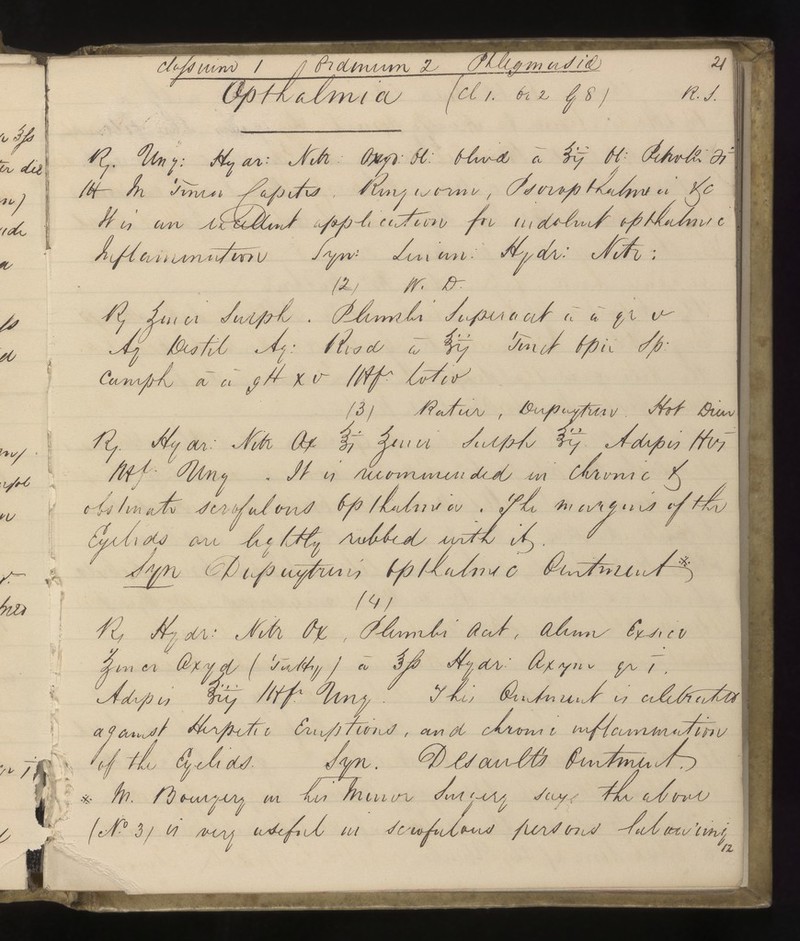 Classium 1 Ordinum 2 Phlegmasia 21
Opthalmia (Cl 1. Or 2 G 8) R. S.
℞. Ung: Hydr: Nitr: Ol: Olivd ā ʒij Ol:
In Tinea Capitis. Ringworm, Psoropthalmia &c
It is an excellent application for indolent opthalmic
Inflammation Syn: Linim: Hydr: Nitr:
(2) W. D.
℞ Zinci Sulph. Plumbi Superacet ā ā gr v
Aq Destil Aq: Rosd ā ℥ij Tinct Opii Sp:
Camph ā ā gtt x v Mf. lotio
(3) Ratier, Dupuytren. Hot Dieu
℞. Hydr: Nitr Ox Zinci Sulph Adipis
Mf. Ung. It is recommended in chronic &
obstinate scrofulous Opthalmia. The margins of the
Eyelids are lightly rubbed with it.
Syn Dupuytren's Opthalmic Ointment *
(4)
℞ Hydr: Nitr Ox, Plumbi Acet, Alum Exsicc
Zinci Oxyd (Tutty) ā ʒß Hydr: Oxym gr i.
Adipis Mf. Ung. This Ointment is celebrated
against Herpetic Eruptions, and chronic inflammation
of the Eyelids. Syn. Desault's Ointment.
* M. Bourgery in his Minor Surgery says the above
(No 3) is very useful in scrofulous persons labouring
12